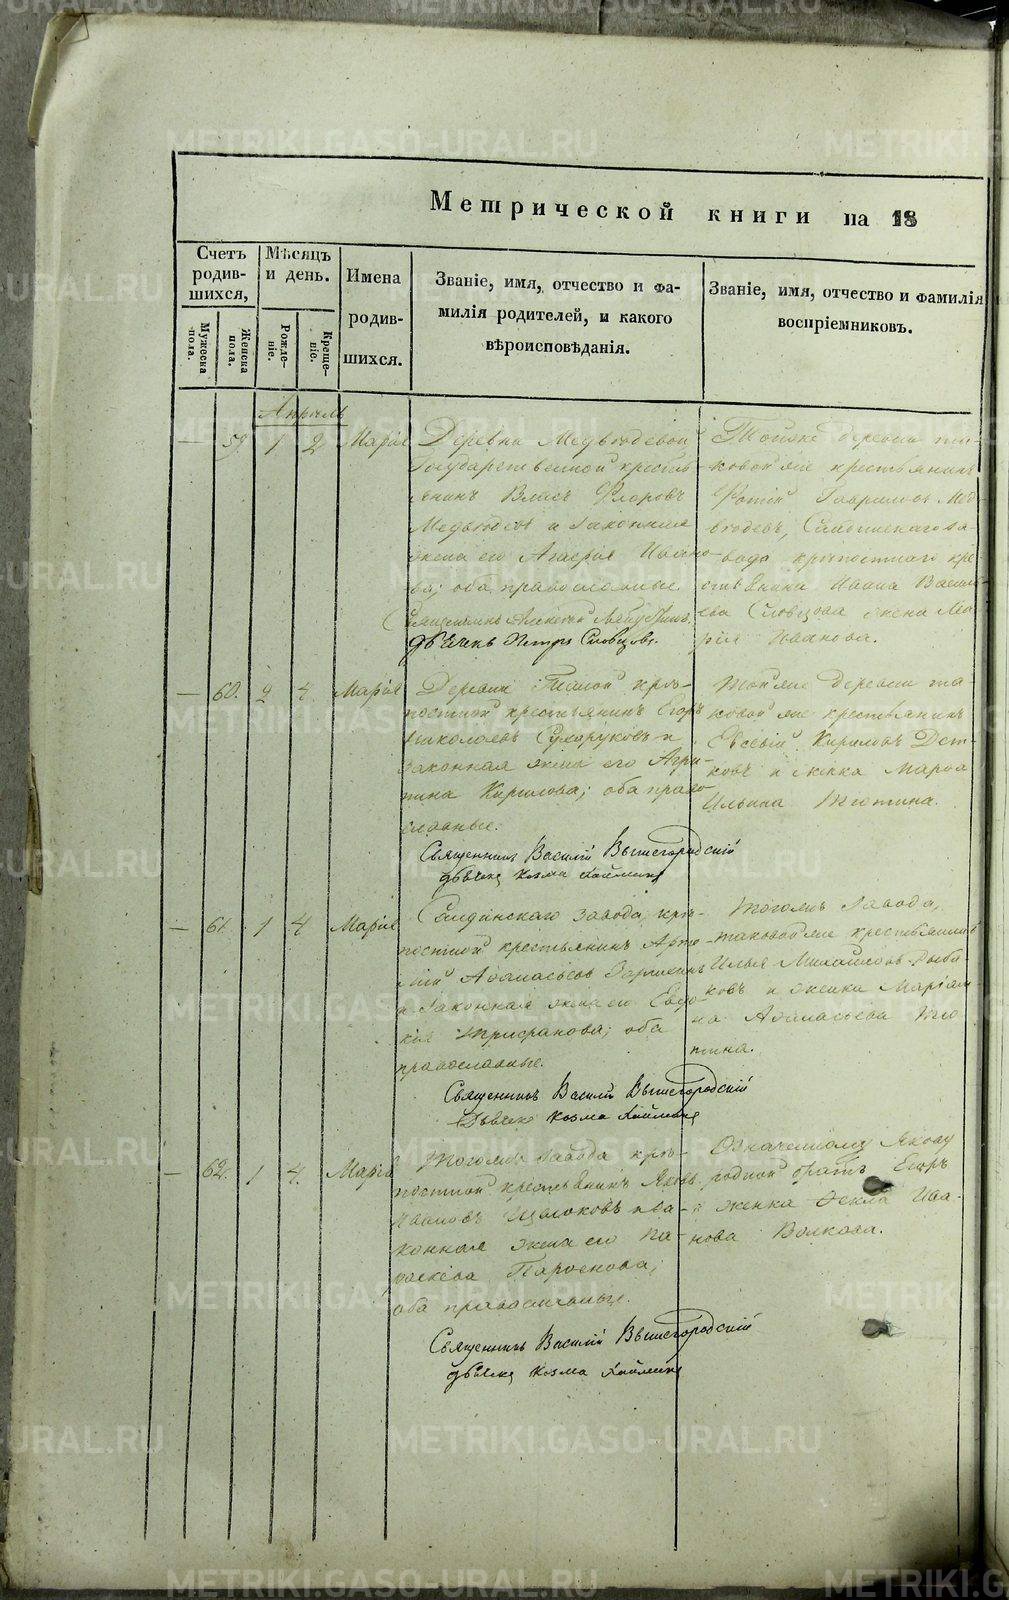 METRIKI.GASO-URAL.RU
Метрической книги на 18
Счетъ родив- шихся,
Мѣсяцъ и день.
Имена родив- шихся.
Званіе, имя, отчество и фа-
милія родителей, и какого
вѣроисповѣданія.
Званіе, имя, отчество и фамилія
воспріемниковъ.
Мужеска пола.
Женска пола.
Рожде- ніе.
Креще- ніе.
Апрѣль
— 59 1 2 Марія
Деревни Медвѣдевой
Государственной крестья-
янинъ Власъ Флоровъ
Медвѣдевъ и законная
жена его Ивано-
ва; оба православные
Священникъ Алексѣй
дьячекъ Петръ Словцовъ.
Тойже деревни та-
ковой же крестьянинъ
Фотій Гавриловъ Мед-
вѣдевъ, за-
вода крѣпостнаго кре-
стьянина Ивана Василь-
ева Словцова жена Ма-
рія Иванова.
— 60. 2 4. Марія
Деревни крѣ-
постной крестьянинъ Егоръ
Николаевъ Сухоруковъ и
законная жена его Агри-
пина Кирилова; оба право
славные.
Священникъ Василій Вышегородскій
дьячекъ Козма
Той же деревни та-
ковой же крестьянинъ
Евсевій Кириловъ Дет-
ковъ и женка Марѳа
Ильина Тютина.
— 61. 1 4 Марія
завода крѣ-
постной крестьянинъ Арте-
мій Аѳанасьевъ
и законная жена его Евдо-
кія оба
православные.
Священникъ Василій Вышегородскій
Дьячекъ Козма
Тогожъ завода,
таковой же крестьянинъ
Илья Михайловъ Рыба-
ковъ и женка Маріам-
на Аѳанасьева Тю-
тина.
— 62. 1 4. Марія
Тогожъ завода крѣ-
постной крестьянинъ Яковъ
Ивановъ и за-
конная жена его Па-
раскева Парѳенова;
оба православные.
Священникъ Василій Вышегородскій
дьячекъ Козма
Означенному Якову
родной братъ Егоръ
и женка Ѳекла Ива-
нова Волкова.